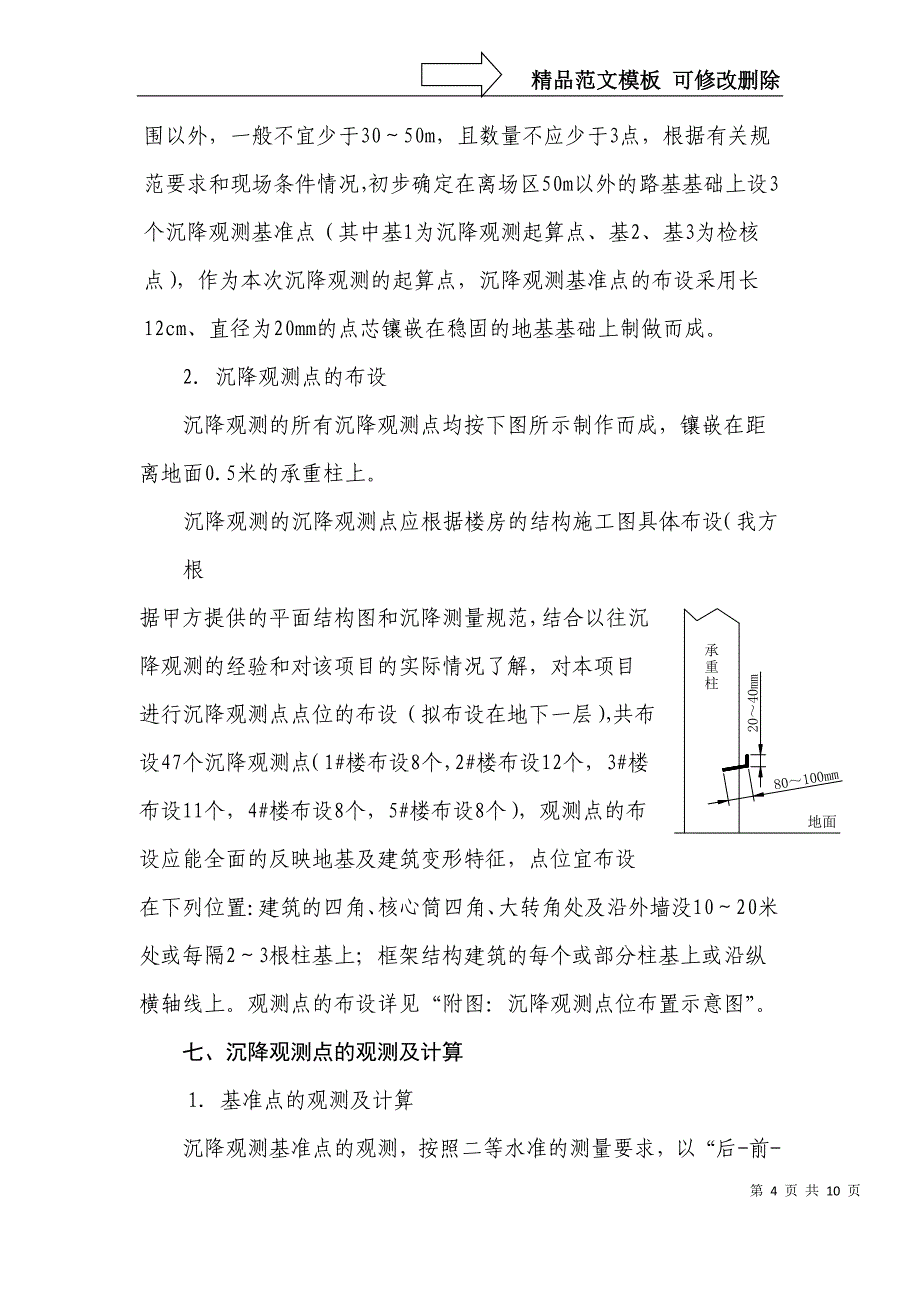 精品范文模板 可修改删除
围以外，一般不宜少于30～50m，且数量不应少于3点，根据有关规
范要求和现场条件情况,初步确定在离场区50m以外的路基基础上设3
个沉降观测基准点（其中基1为沉降观测起算点、基2、基3为检核
点），作为本次沉降观测的起算点，沉降观测基准点的布设采用长
12cm、直径为20mm的点芯镶嵌在稳固的地基基础上制做而成。
2. 沉降观测点的布设
沉降观测的所有沉降观测点均按下图所示制作而成，镶嵌在距
离地面0.5米的承重柱上。
沉降观测的沉降观测点应根据楼房的结构施工图具体布设(我方
根
据甲方提供的平面结构图和沉降测量规范,结合以往沉
降观测的经验和对该项目的实际情况了解，对本项目
进行沉降观测点点位的布设（拟布设在地下一层),共布
设47个沉降观测点(1#楼布设8个,2#楼布设12个，3#楼
布设11个，4#楼布设8个，5#楼布设8个），观测点的布
设应能全面的反映地基及建筑变形特征，点位宜布设
在下列位置:建筑的四角、核心筒四角、大转角处及沿外墙没10～20米
处或每隔2～3根柱基上；框架结构建筑的每个或部分柱基上或沿纵
横轴线上。观测点的布设详见“附图：沉降观测点位布置示意图”。
承重柱
20～40mm
80～100mm
地面
七、沉降观测点的观测及计算
1. 基准点的观测及计算
沉降观测基准点的观测，按照二等水准的测量要求，以“后-前-
第 4 页 共 10 页